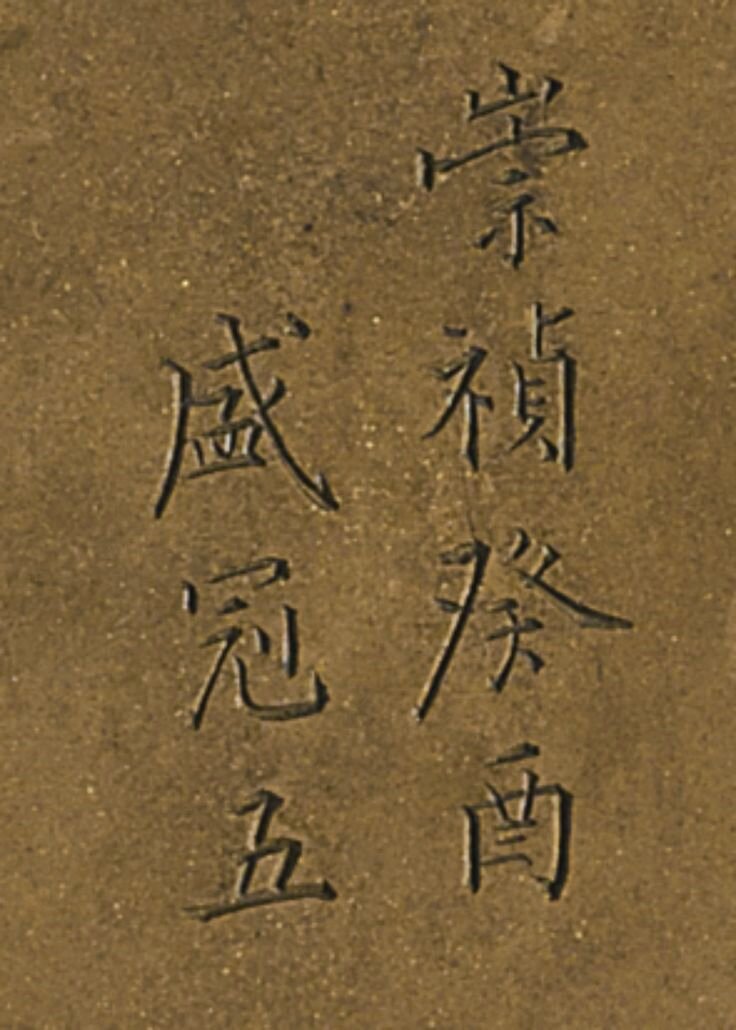 崇禎癸酉
盛冠五